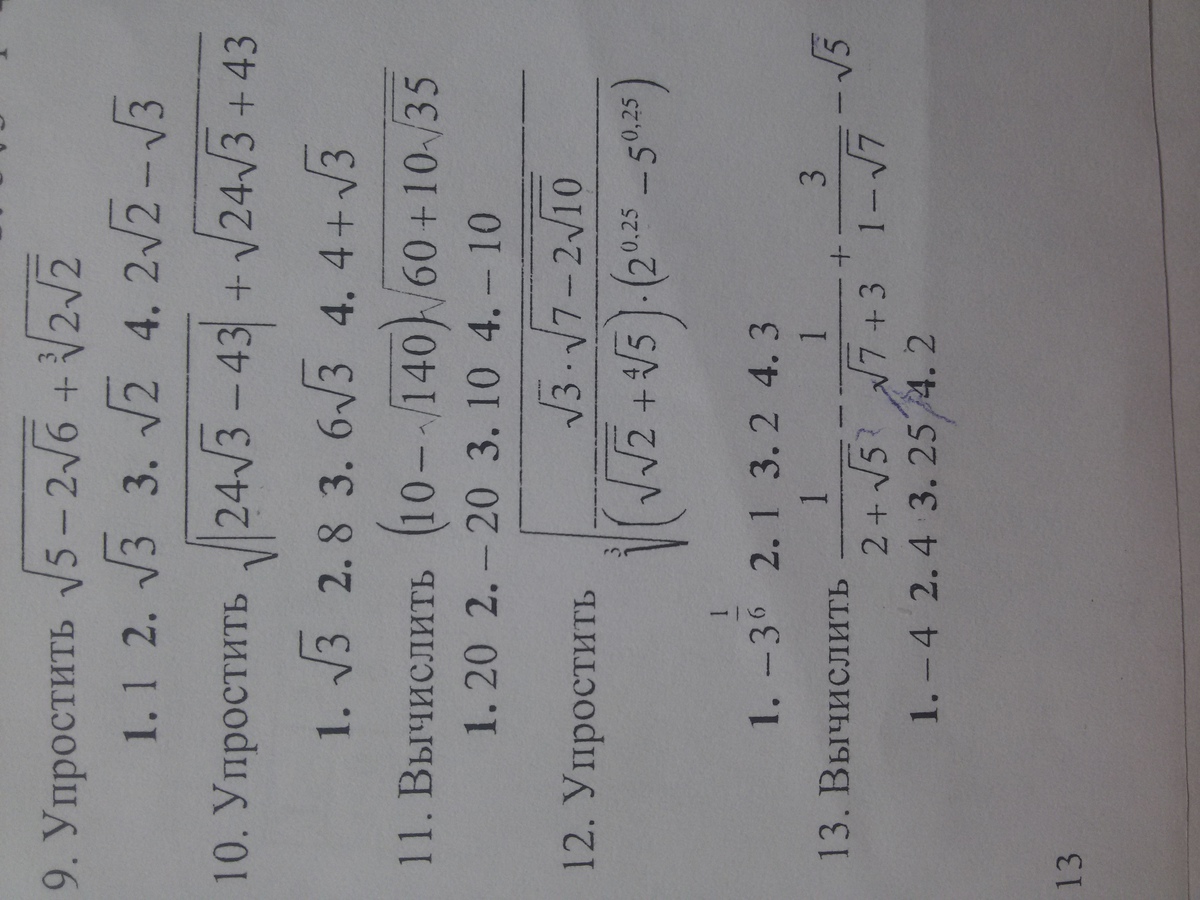 9. Упростить √(5 − 2√6) + ∛(2√2)
1. 1 2. √3 3. √2 4. 2√2 − √3
10. Упростить √|24√3 − 43| + √(24√3 + 43)
1. √3 2. 8 3. 6√3 4. 4 + √3
11. Вычислить (10 − √140)√(60 + 10√35)
1. 20 2. − 20 3. 10 4. − 10
12. Упростить ∛((√3 · √(7 − 2√10)) / ((√√2 + ∜5) · (2^0,25 − 5^0,25)))
1. −3^(1/6) 2. 1 3. 2 4. 3
13. Вычислить 1/(2 + √5) − 1/(√7 + 3) + 3/(1 − √7) − √5
1. − 4 2. 4 3. 25 4. 2
13